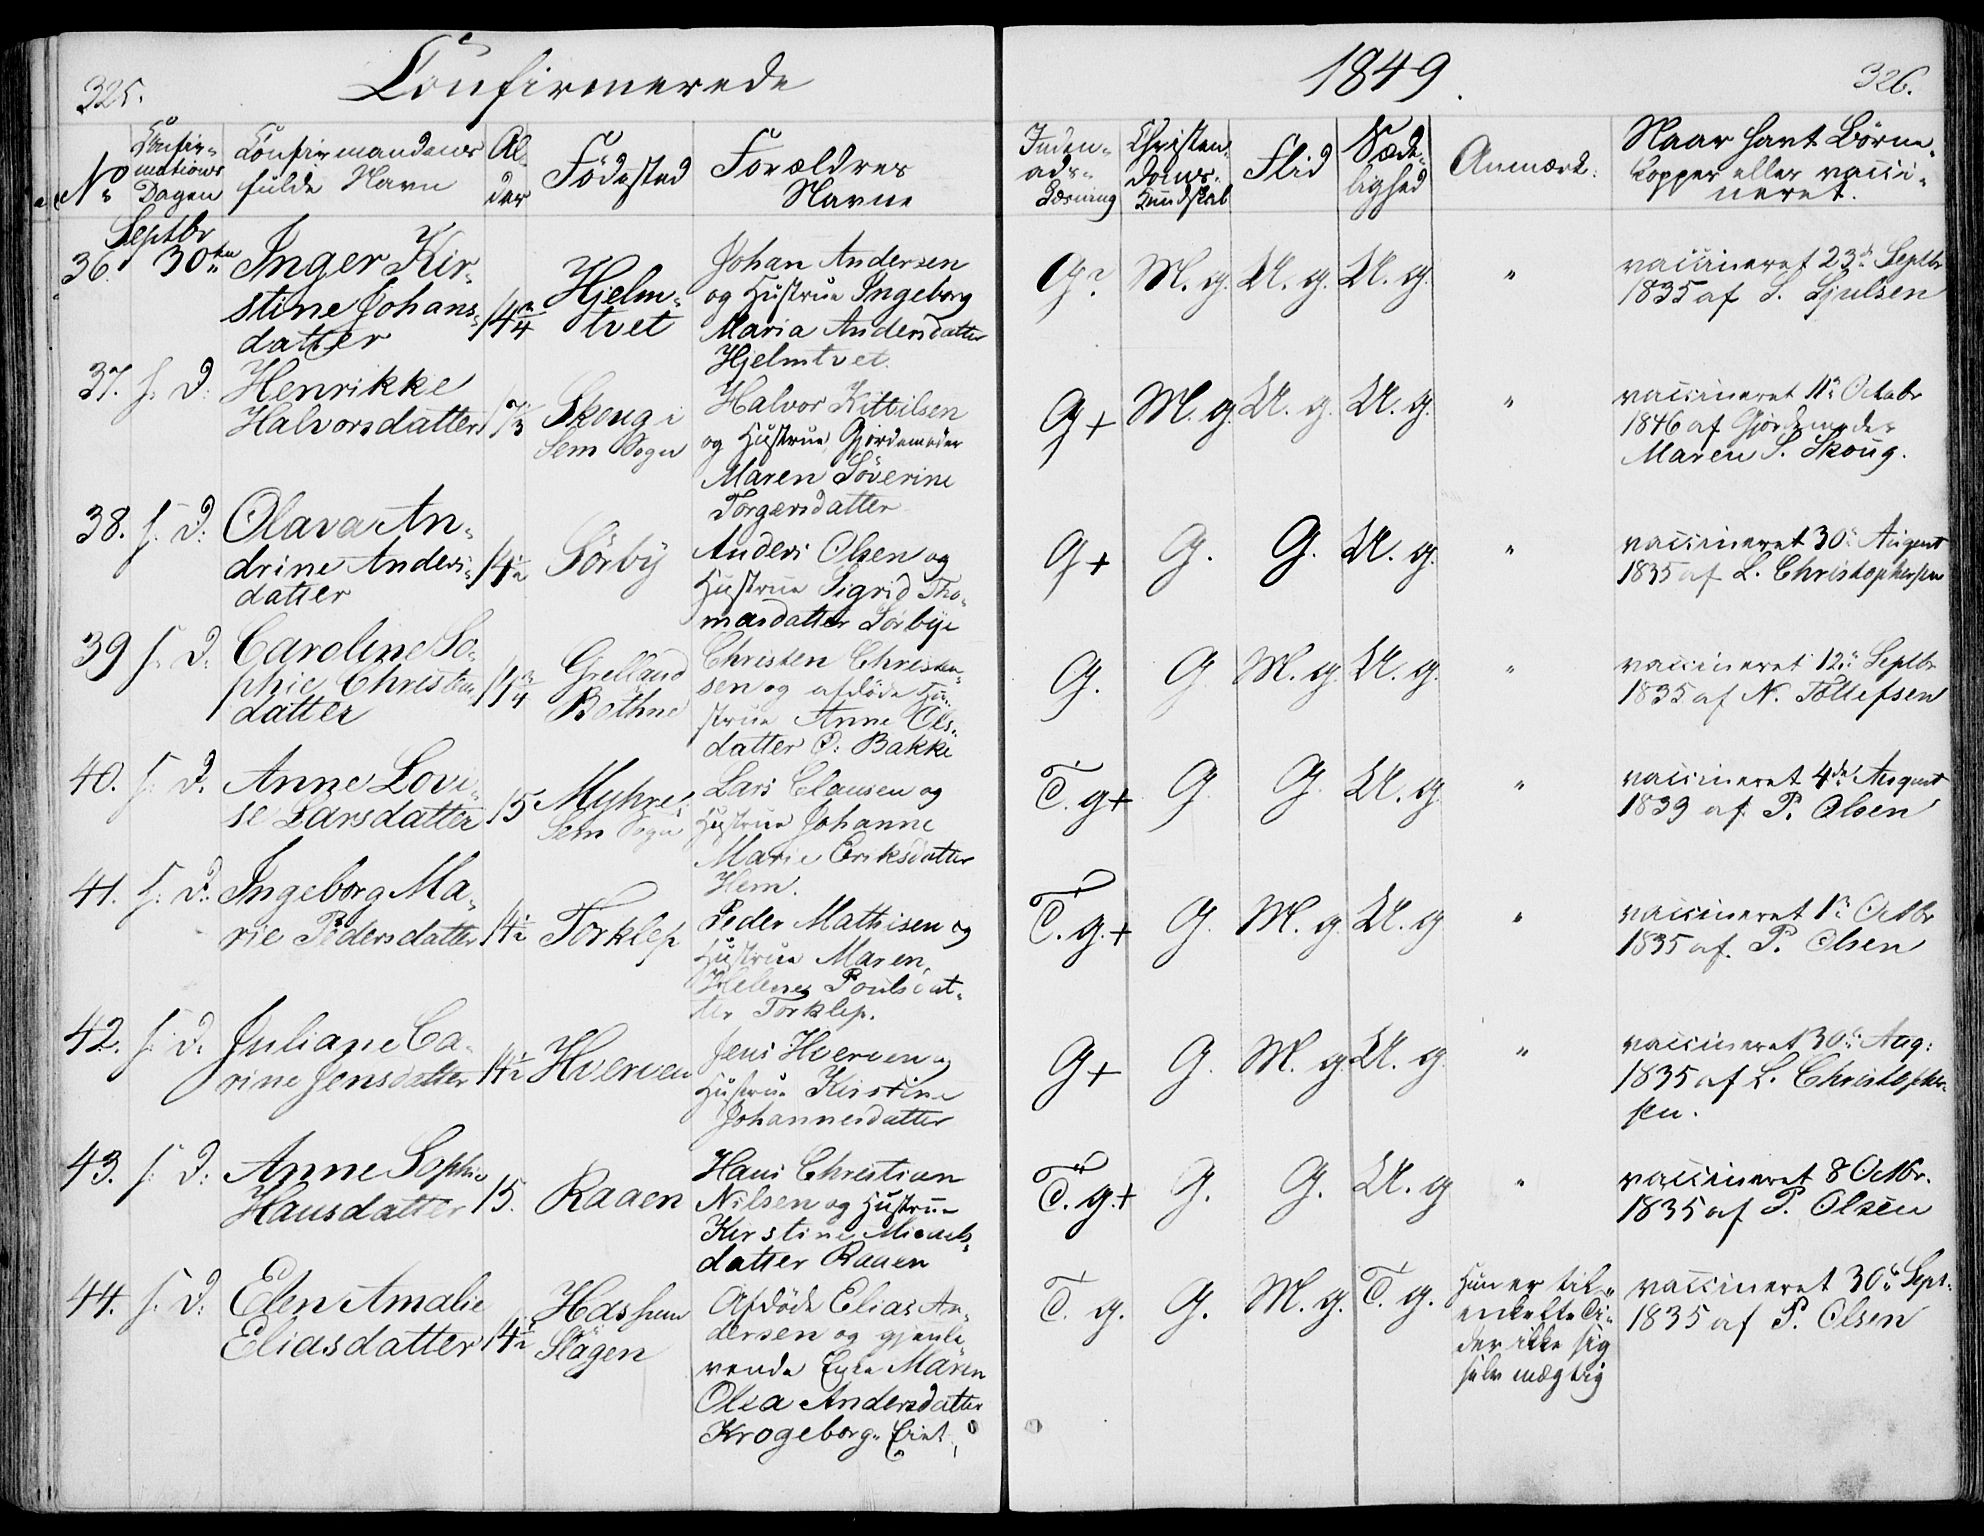 325.
Confirmerede
1849.
326.
No
Confir-
mations
Dagen
Confirmandens
fulde Navn
Al-
der
Födested
Forældres
Navne
Inden-
ads-
Læsning
Christen-
doms-
Kundskab
Flid
Sæde-
lighed
Anmærk:
Naar havt Börne-
kopper eller vacci-
neret.
Septbr
36. 30te Inger Kir-
stine Johans-
datter
14 3/4
Hjelm-
tvet
Johan Andersen
og Hustrue Ingeborg
Maria Andersdatter
Hjelmtvet.
G? M. g. U. g. U. g. "
vaccineret 23de Septbr
1835 af S. Sjulsen
37. s. D. Henrikke
Halvorsdatter
Skoug i
Sem Sogn
Halvor Kittilsen
og Hustrue, Gjördemoder
Maren Söverine
Torgersdatter
G+ M. g. U. g. U. g. "
vaccineret 11te Octobr
1846 af Gjördemoder
Maren S. Skoug.
38. s. D: Olava An-
drine Anders-
datter
14 1/2
Sörby
Anders Olsen og
Hustrue Sigrid Tho-
masdatter Sörbye
G+ G. G. U. g. "
vaccineret 30te August
1835 af L. Christophersen
39 s. D: Caroline So-
phie Christens
datter
14 3/4
Grelland
Böthne
Christen Christen-
sen og afdöde Hu-
strue Anne Ols-
datter O: Bakke
G. G M. g. U. g. "
vaccineret 12te Septbr
1835 af N. Tollefsen
40. s. D. Anne Lovi-
se Larsdatter
15
Myhre,
Sem Sogn
Lars Clausen og
Hustrue Johanne
Marie Eriksdatter
Hem.
T. g+ G G. U. g "
vaccineret 4de August
1839 af P. Olsen
41. s. D: Ingeborg Ma-
rie Pedersdatter
14 1/2
Torklep
Peder Mathisen og
Hustrue Maren
Helene Poulsdat-
ter Torklep.
T. g.+ G. M. g. U. g "
vaccineret 1te Octbr
1835 af P. Olsen
42. s. D. Juliane Ca-
rine Jensdatter
14 1/2
Hverven
Jens Hverven og
Hustrue Kirstine
Johannesdatter
G+ G. M. g. U. g. "
vaccineret 30te Aug:
1835 af L. Christopher-
sen.
43. s. D: Anne Sophie
Hansdatter
15.
Raaen
Hans Christian
Nilsen og Hustrue
Kirstine Micaels-
datter Raaen
T. g.+ G. G. U. g "
vaccineret 8 Octbr.
1835 af P. Olsen
44. s. D: Elen Amalie
Eliasdatter
14 1/2
Hassum
Slagen
Afdöde Elias An-
dersen og gjenle-
vende Enke Maren
Olea Andersdatter
Krogeborg-Eiet
T. g. G. M. g. T. g.
Hun er til
enkelte Ti-
der ikke sig
selv mægtig
vaccineret 30te Sept.
1835 af P. Olsen